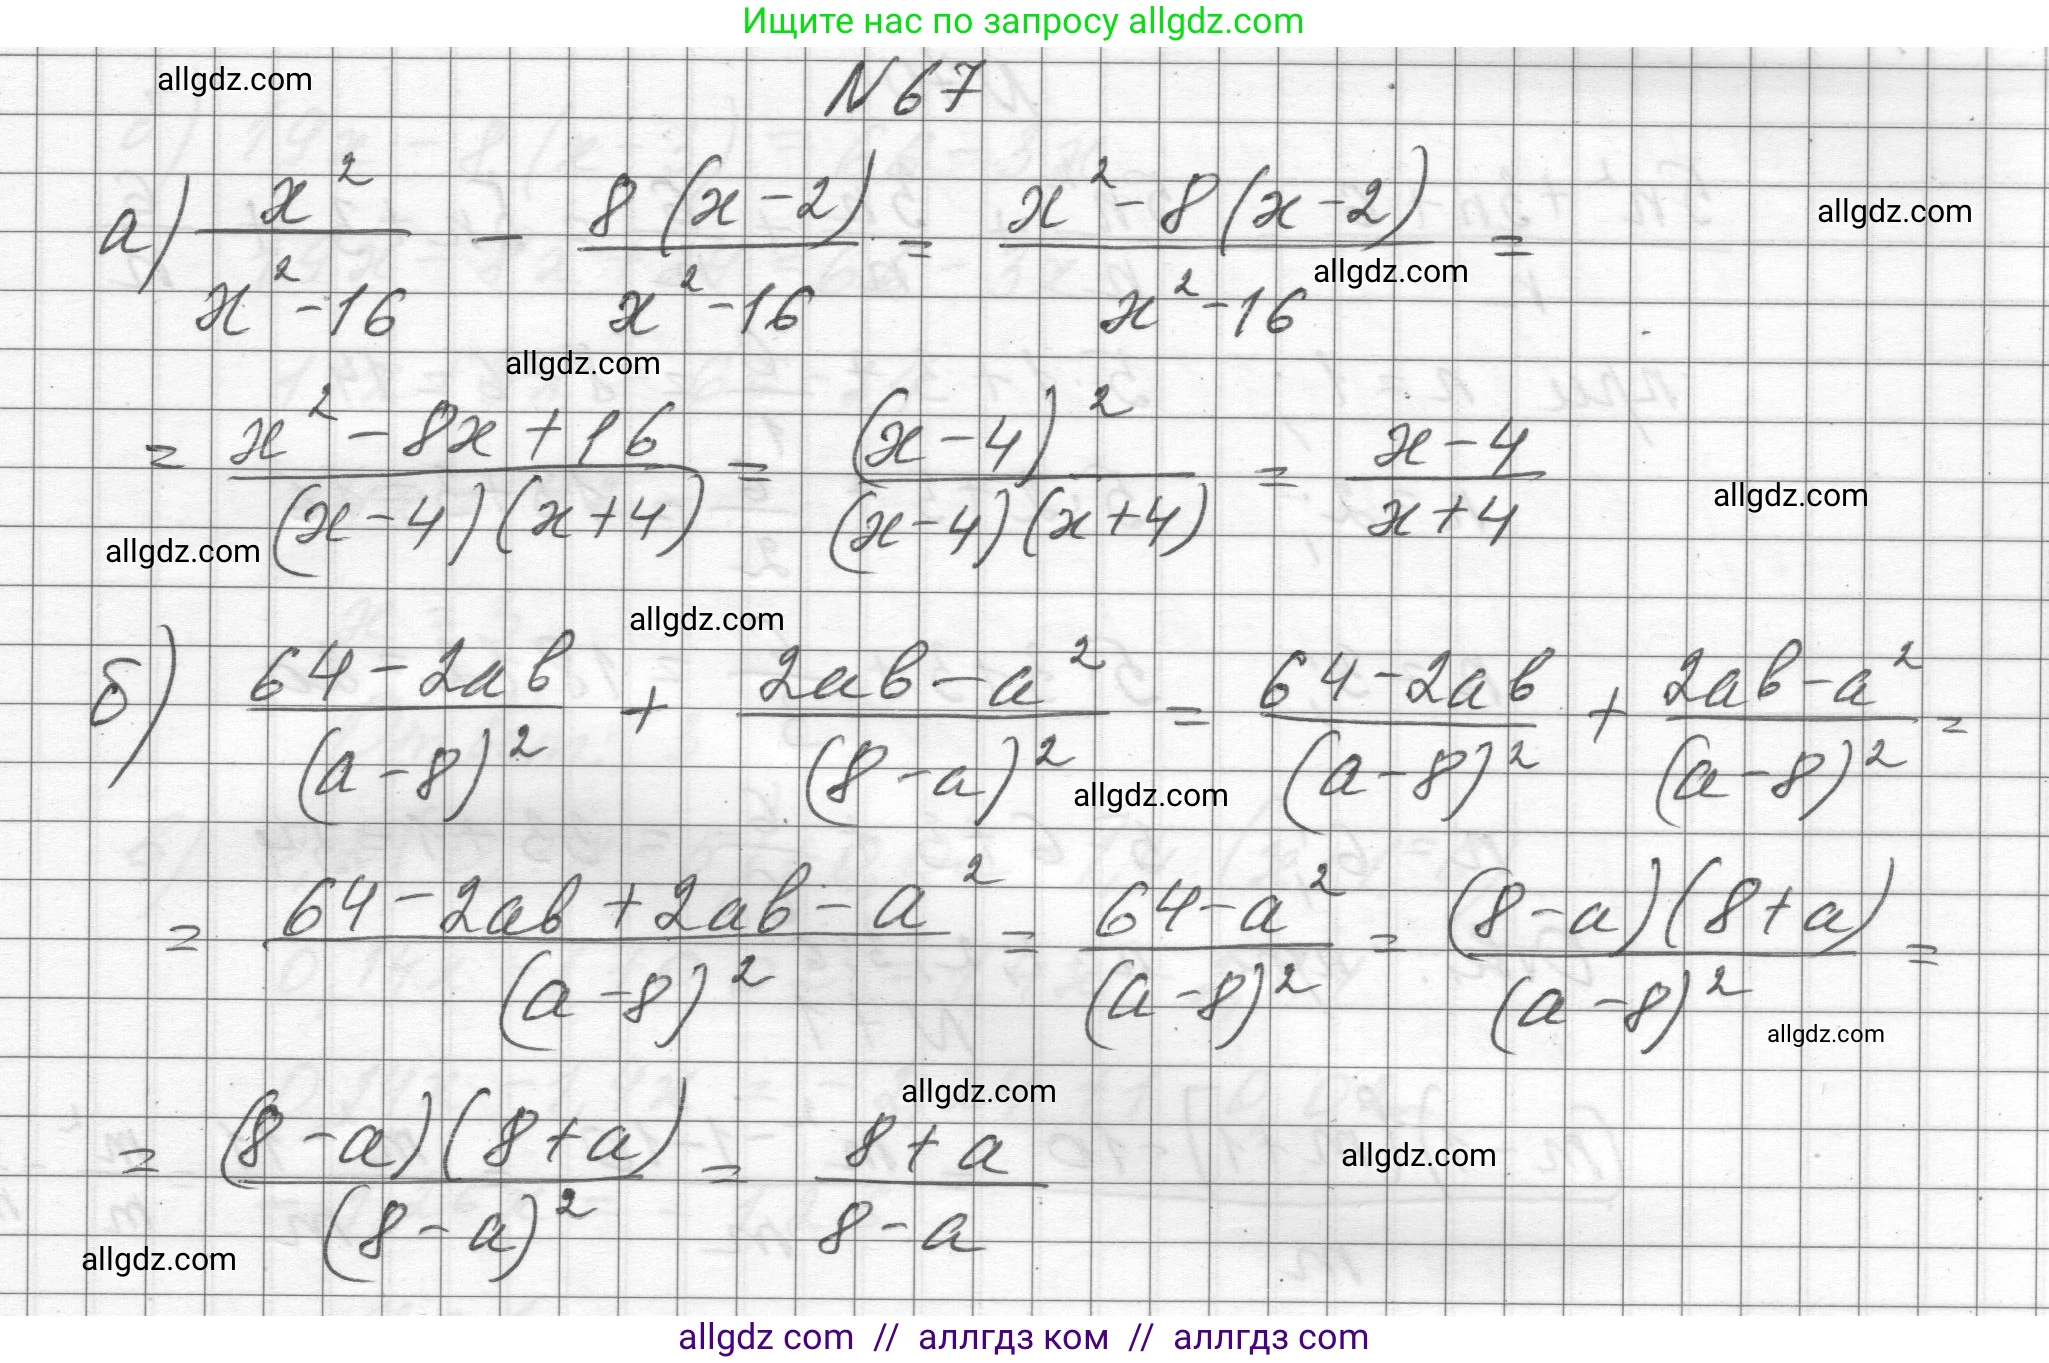 Ищите нас по запросу allgdz.com
allgdz.com
N 67
а) x²/(x²-16) - 8(x-2)/(x²-16) = (x²-8(x-2))/(x²-16) =
allgdz.com
allgdz.com
allgdz.com
= (x²-8x+16)/((x-4)(x+4)) = (x-4)²/((x-4)(x+4)) = (x-4)/(x+4)
allgdz.com
allgdz.com
allgdz.com
б) (64-2ab)/(a-8)² + (2ab-a²)/(8-a)² = (64-2ab)/(a-8)² + (2ab-a²)/(a-8)² =
allgdz.com
= (64-2ab+2ab-a²)/(a-8)² = (64-a²)/(a-8)² = ((8-a)(8+a))/(a-8)² =
allgdz.com
allgdz.com
= ((8-a)(8+a))/(8-a)² = (8+a)/(8-a)
allgdz.com
allgdz.com
allgdz com // аллгдз ком // аллгдз com